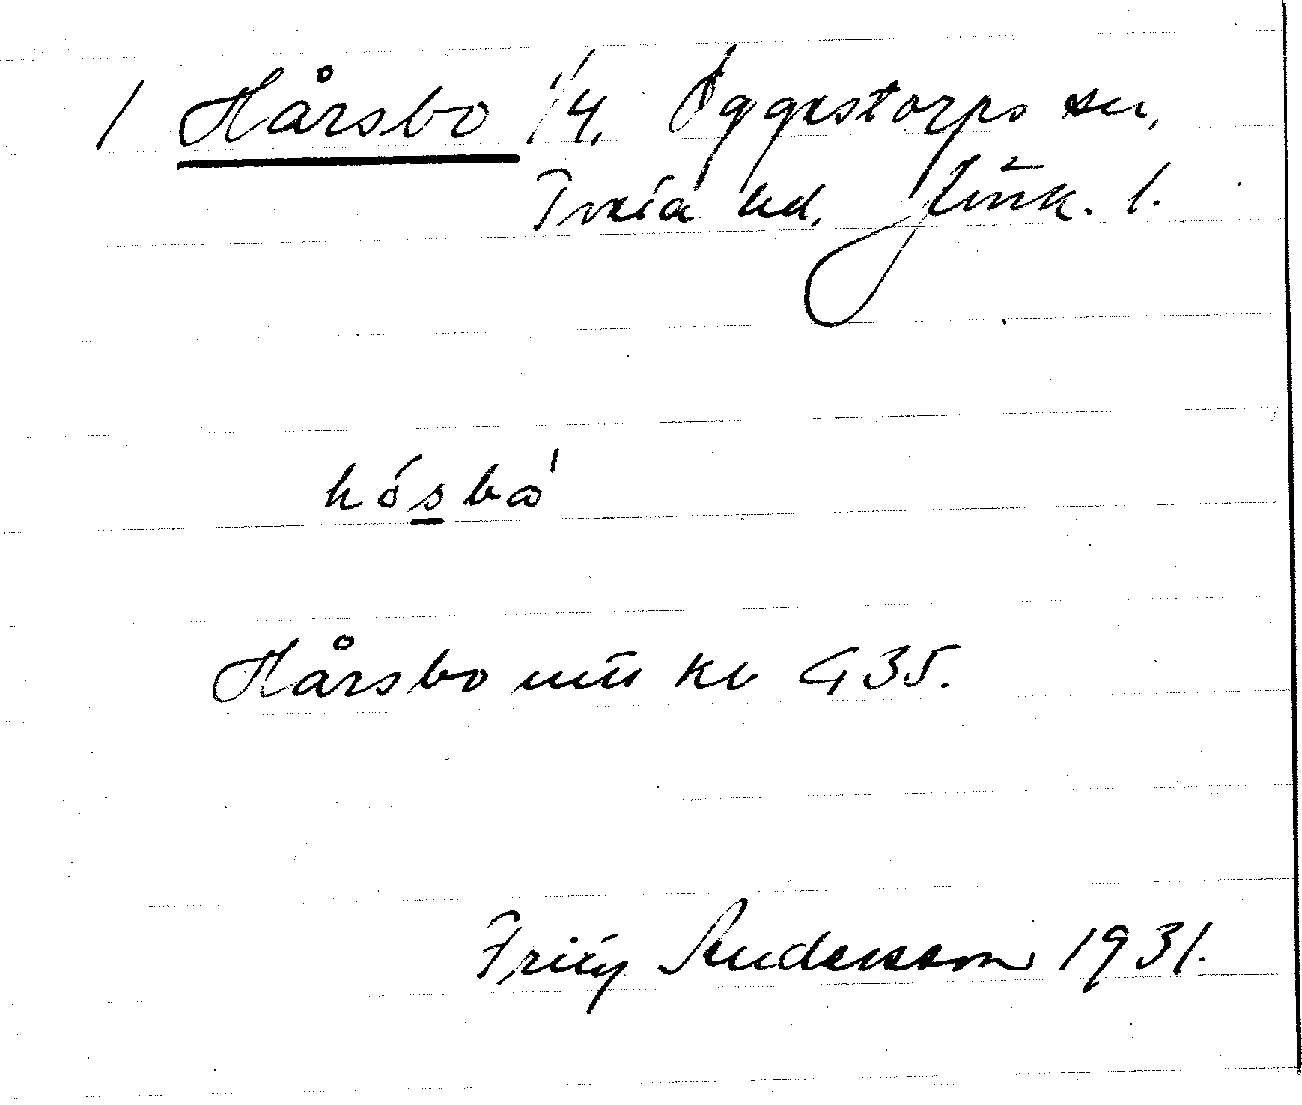 1 Hårsbo 1/4. Öggestorps sn,
Tveta hd. Jönk. l.
hósbò
Hårsbo mtl kv G35.
Fritz Andersson 1931.